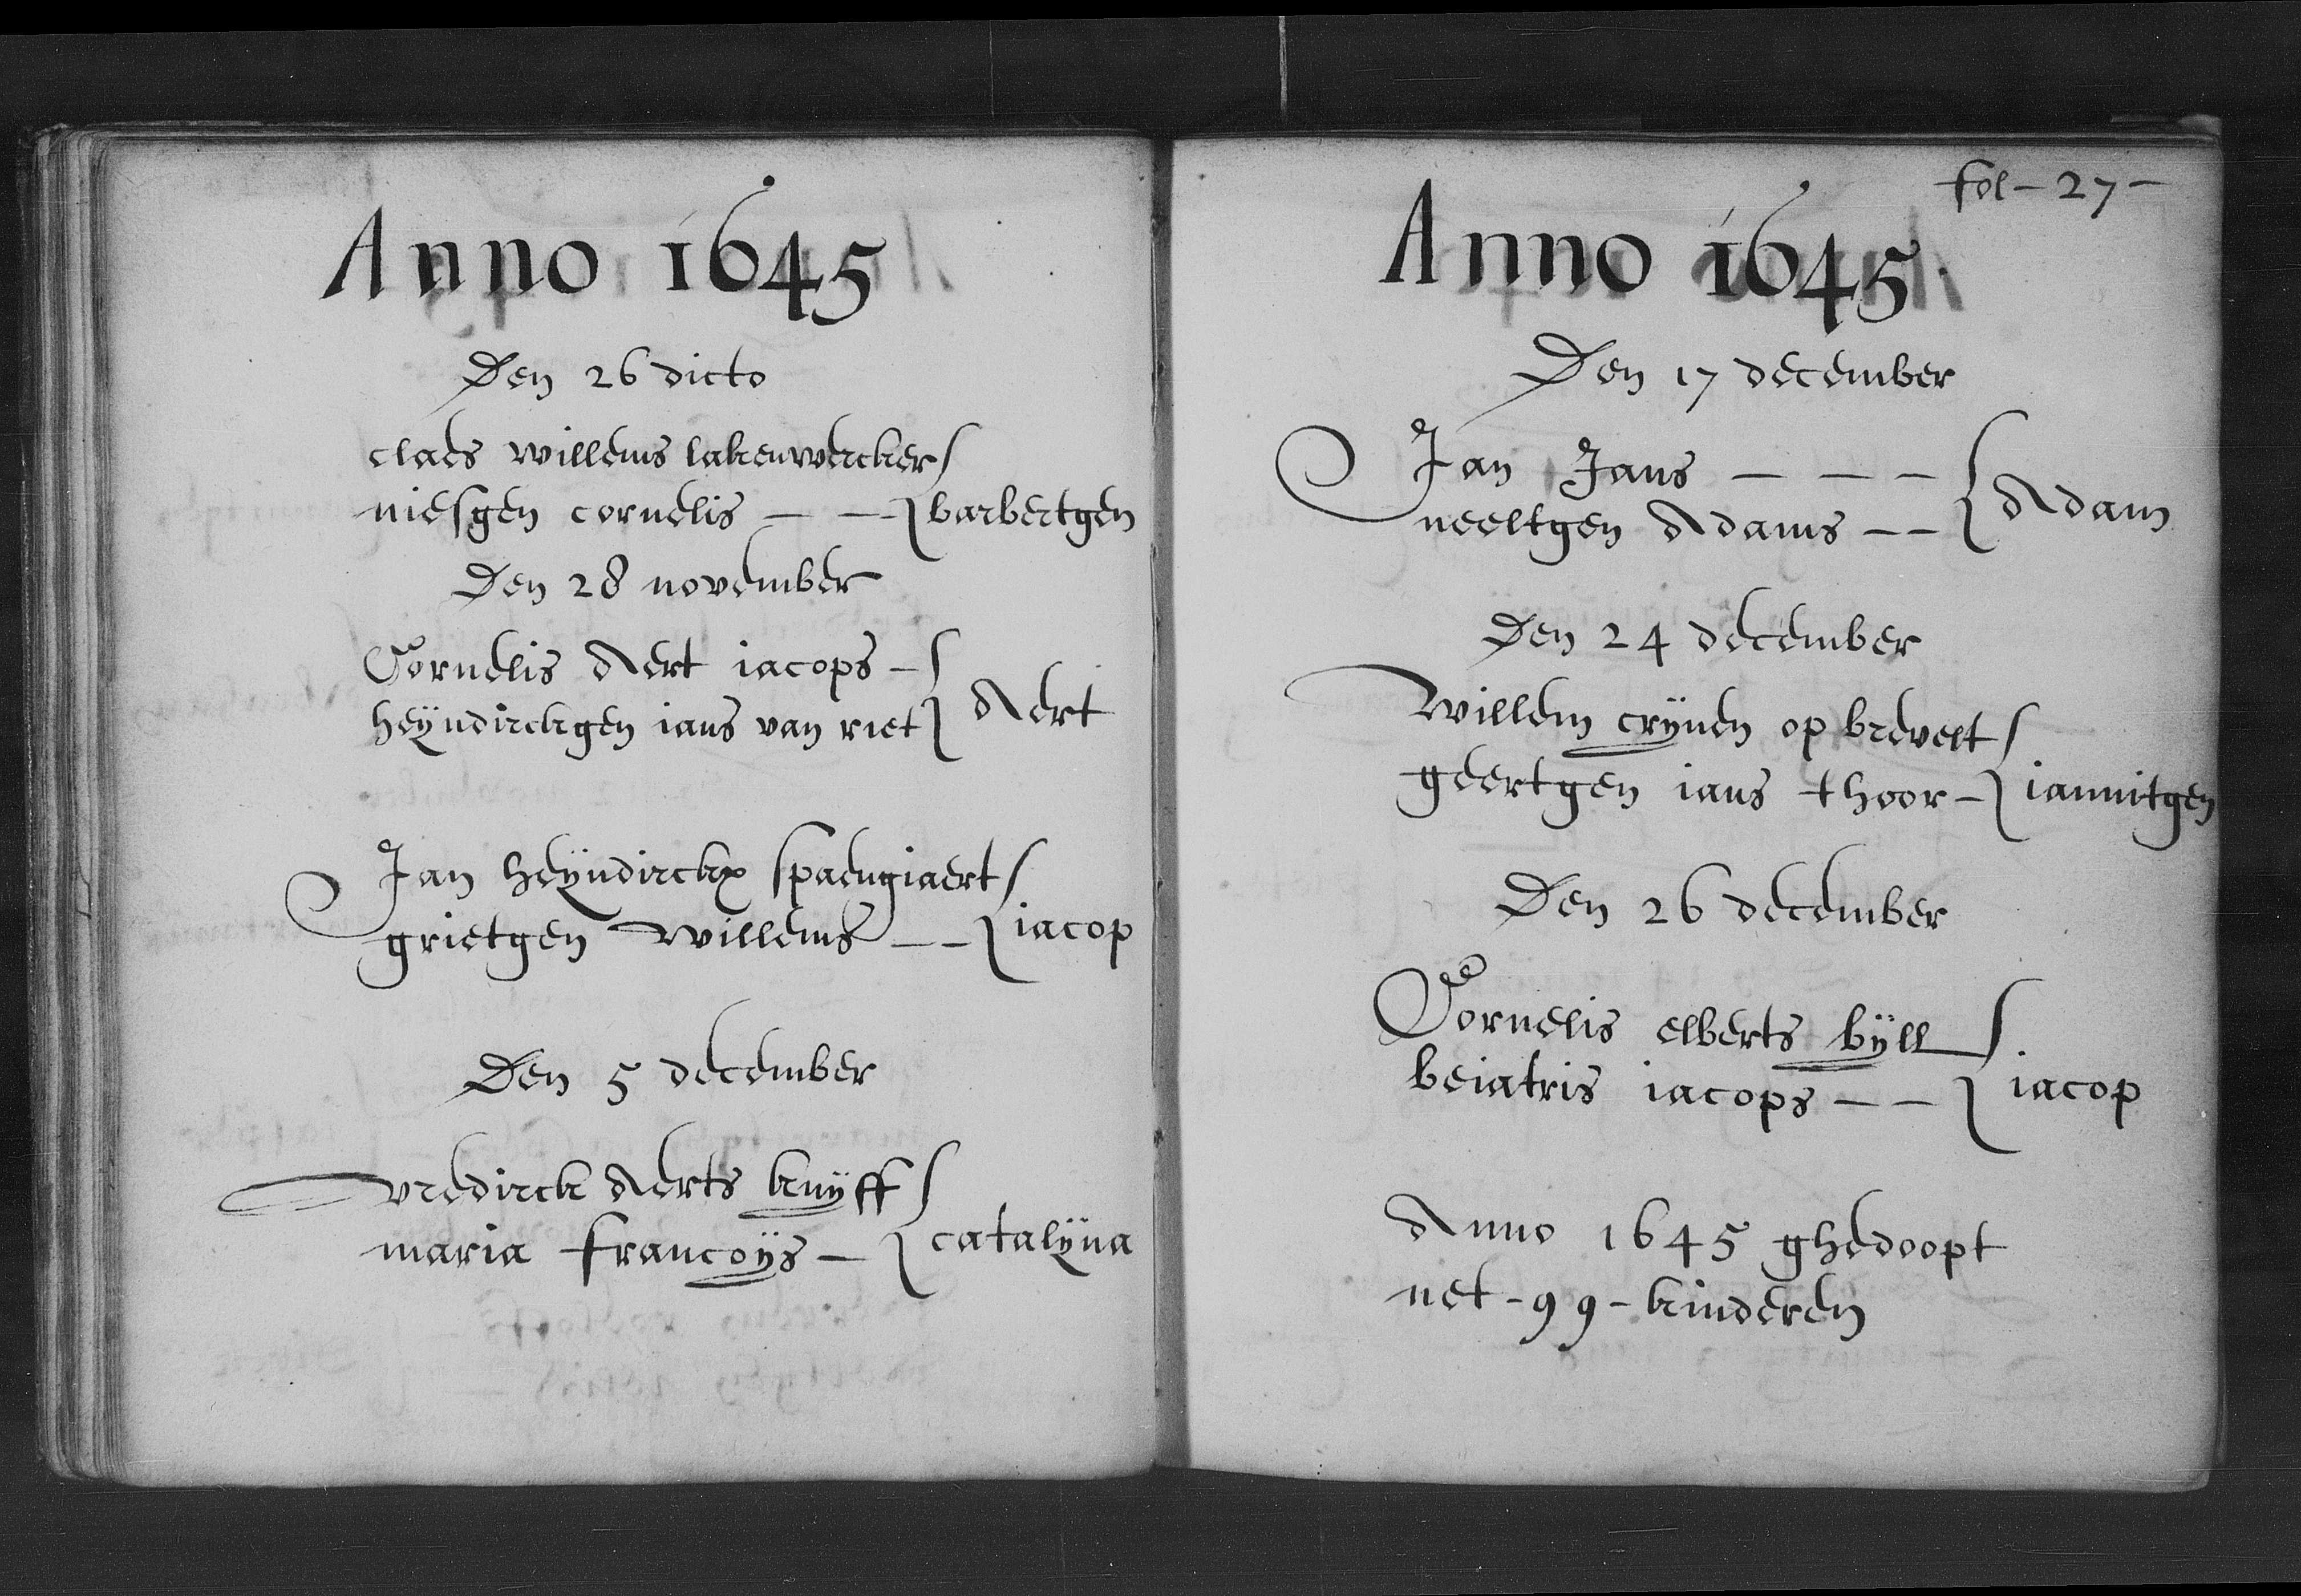 Anno 1645
Den 26 dicto
claes willems lakenwercker
niesgen cornelis — — barbertgen
Den 28 november
Cornelis Aert iacops –
heÿndirckgen ians van riet Aert
Jan heÿndirckx spaengiaert
grietgen willems — — iacop
Den 5 december
vredirck Aerts knÿff
maria francoÿs – catalÿna
fol – 27 –
Anno 1645
Den 17 december
Jan Jans — — —
neeltgen Adams — — Adam
Den 24 december
willem crÿnen op brevelt
geertgen ians thoor – iannitgen
Den 26 december
Cornelis elberts bÿll
beiatris iacops — — iacop
Anno 1645 ghedoopt
net - 99 - kinderen